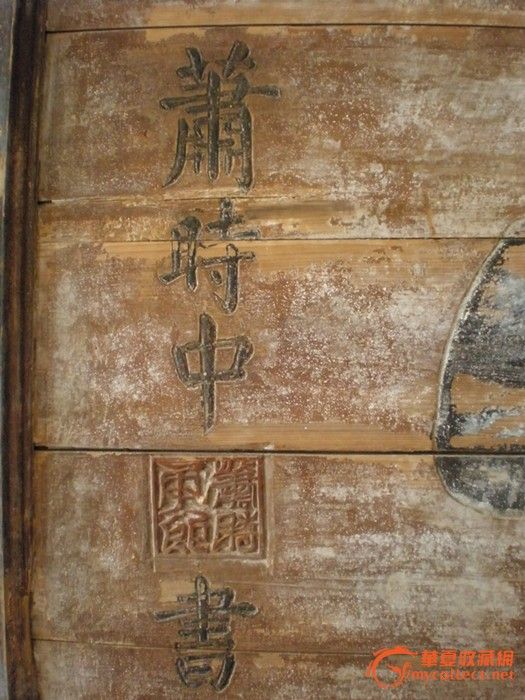 蕭時中
蕭時中印
書
華夏收藏網
mycollect.net